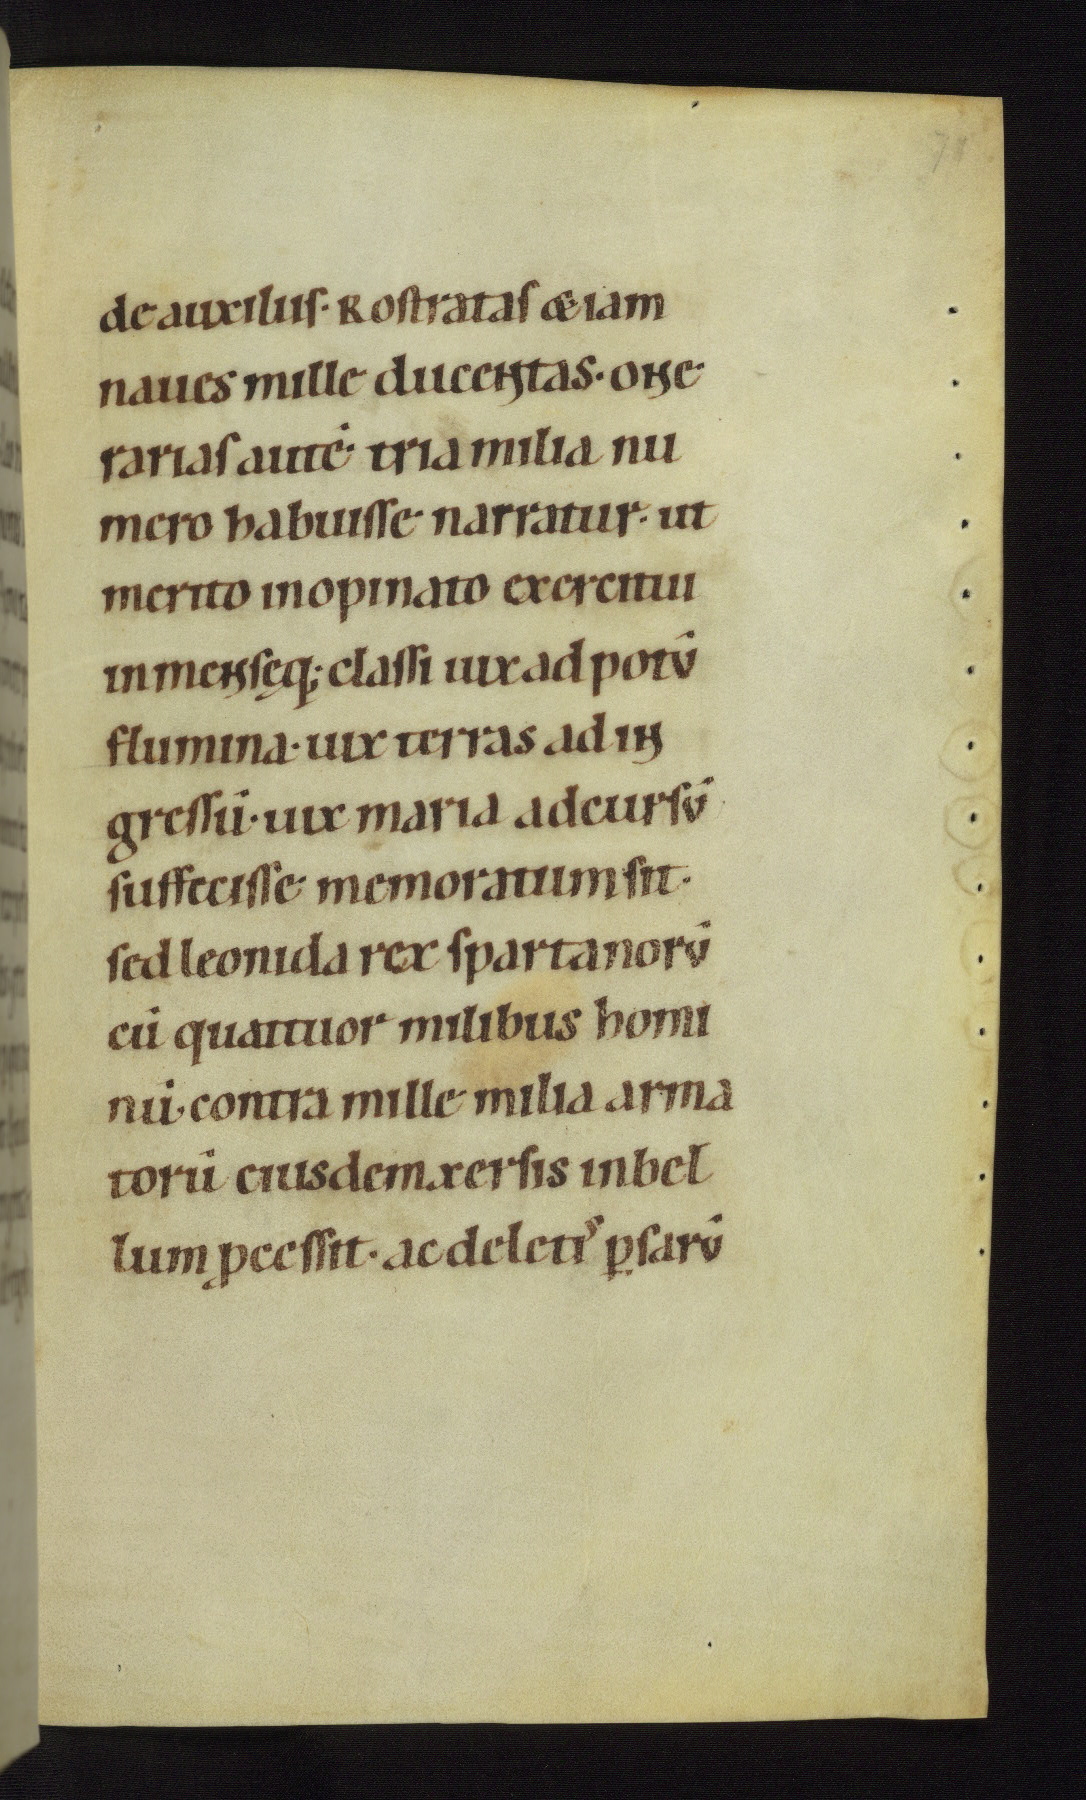 78
de auxiliis. Rostratas &iam
naues mille ducentas. one
rarias autē tria milia nu
mero habuisse narratur. ut
merito inopinato exercitui
inmensęq; classi uix ad potū
flumina. uix terras ad in
gressū. uix maria ad cursū
suffecisse memoratum sit.
sed leonida rex spartanorū
cū quattuor milibus homi
nū. contra mille milia arma
torū eiusdem xersis in bel
lum ꝓcessit. ac deletiˢ ꝑsarū